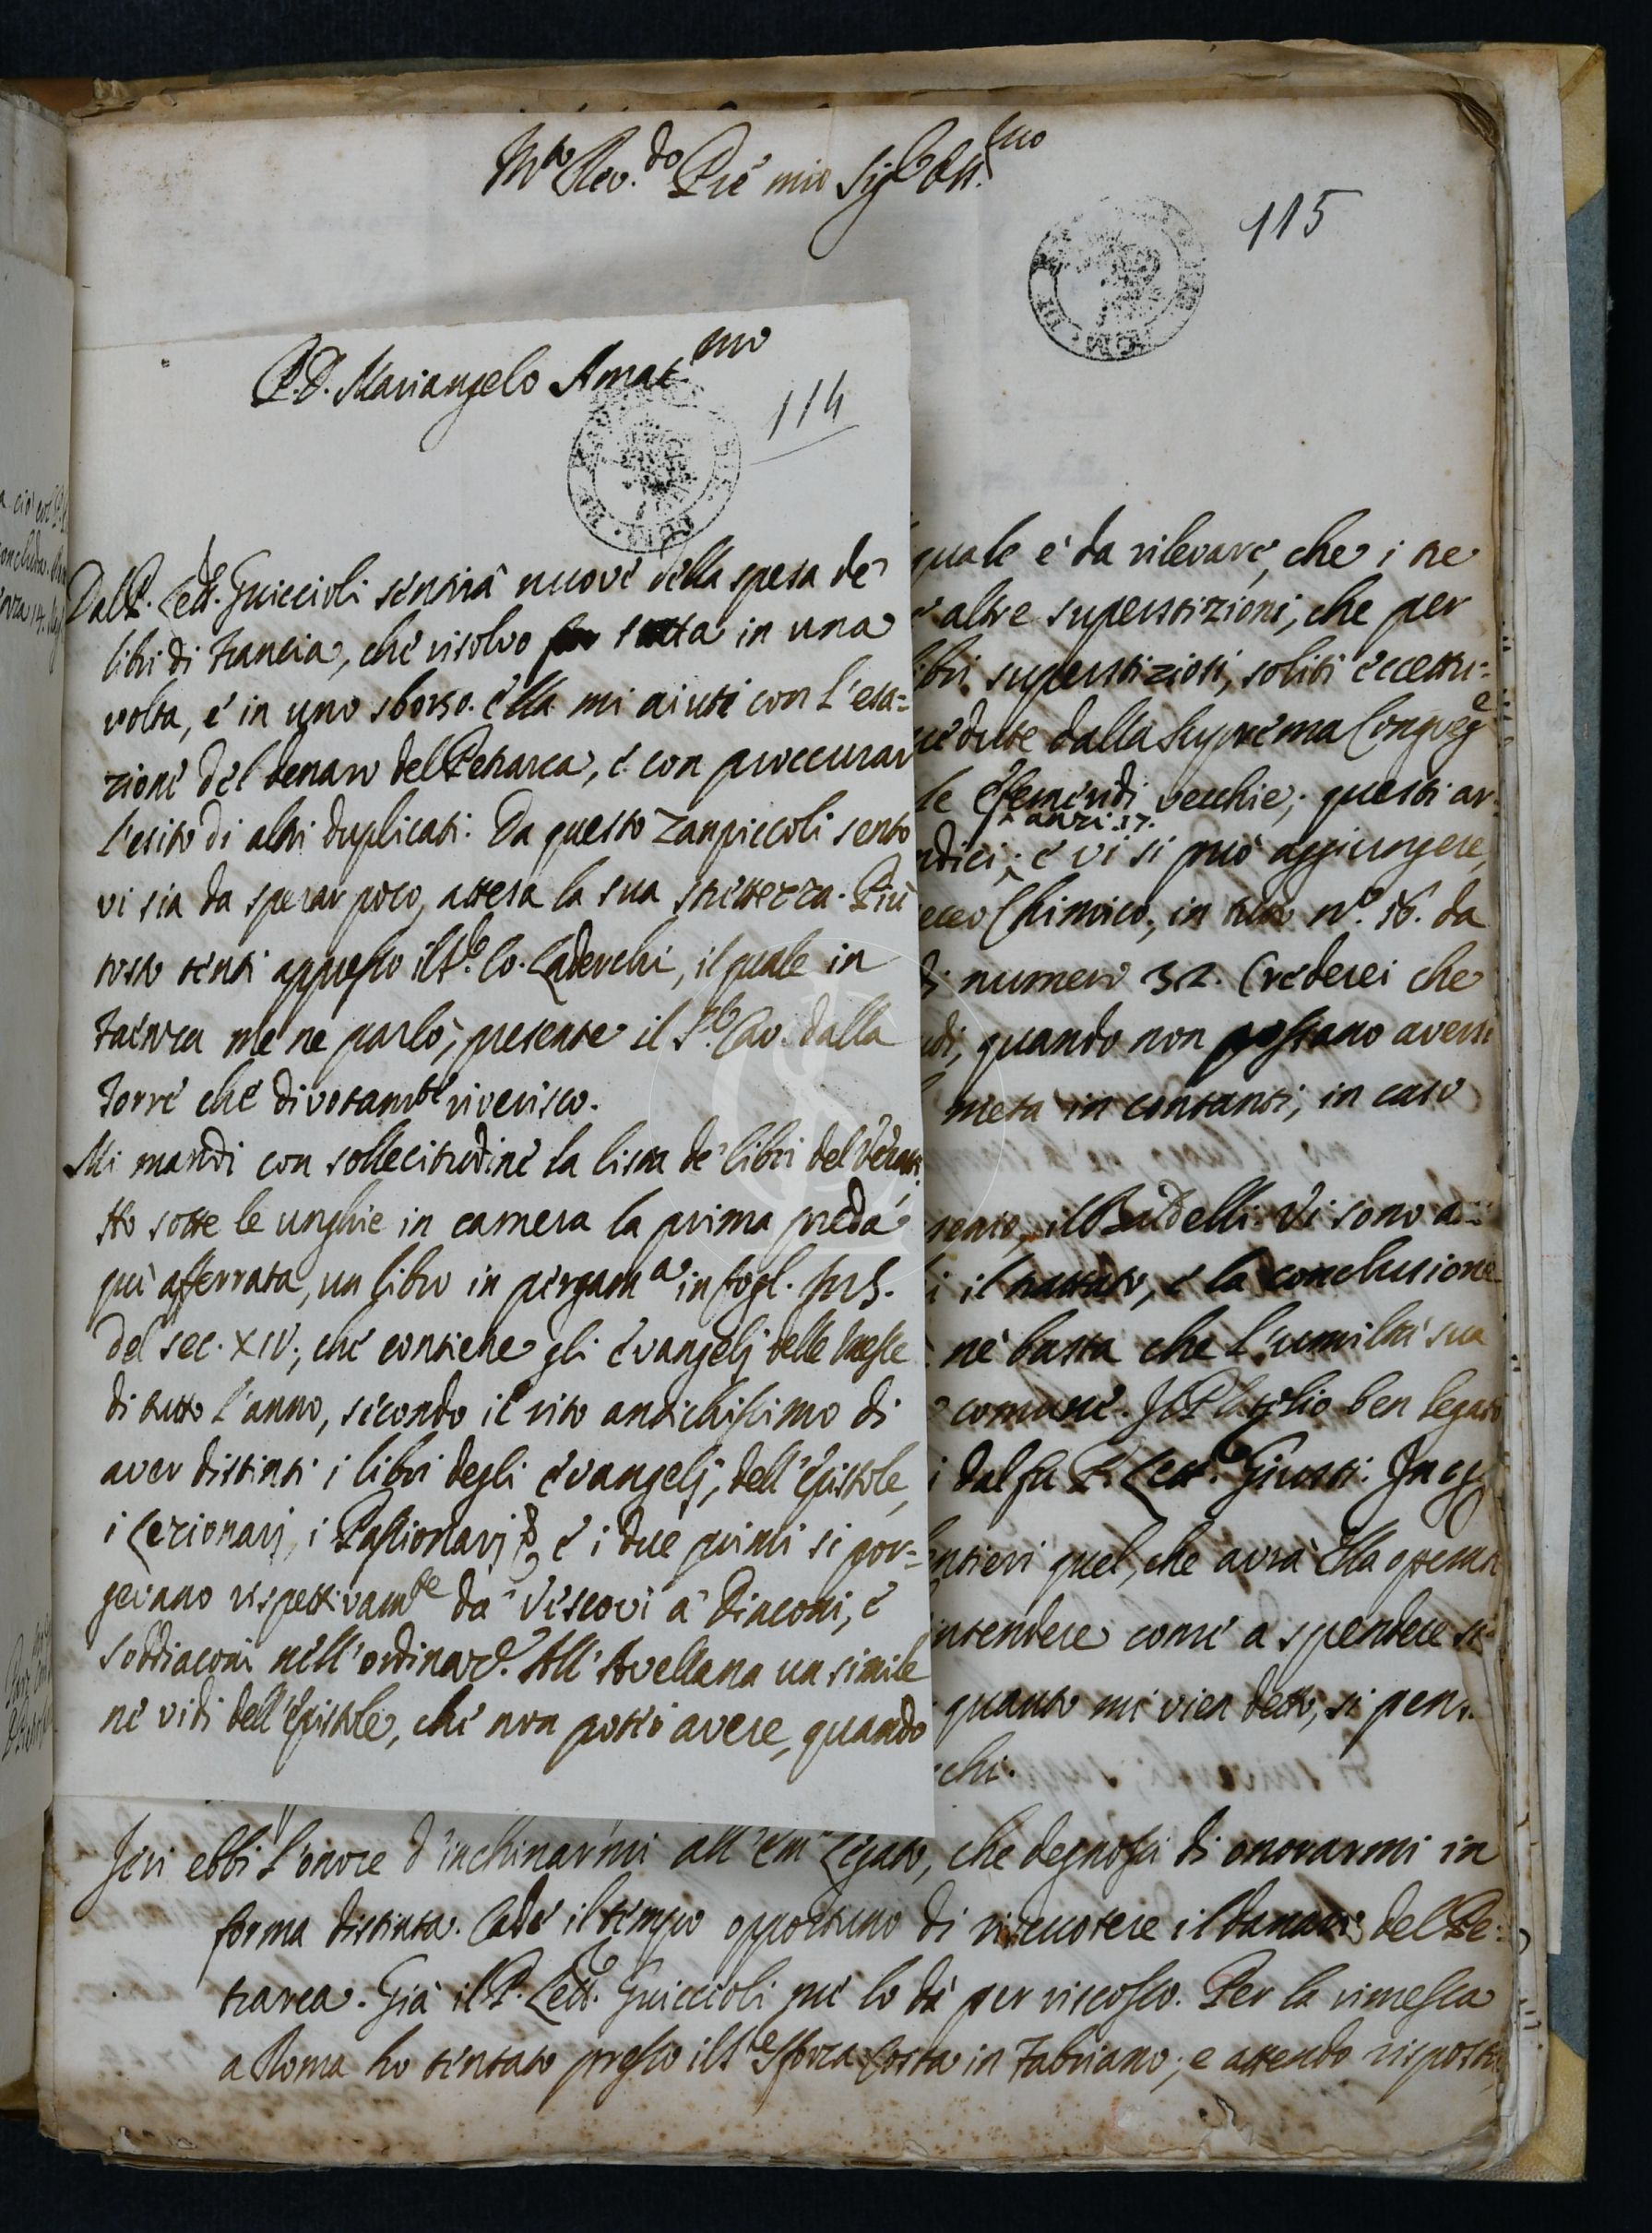 M.to Rev.do P.re mio Sig.r Oss.mo
115
P. D. Mariangelo Amat.mo
114
Dal P. Lett. Guiccioli sentirà nuove della spesa de'
libri di Francia, che risolvo far tutta in una
volta, e in uno sborso. Ella mi aiuti con l'esa=
zione del denaro del Petrarca, e con proccurar
l'esito di altri duplicati. Da questo Zanpiccoli sento
vi sia da sperar poco, attesa la sua strettezza. Più
tosto tenti appresso il S.r Co. Laderchi, il quale in
Faenza me ne parlò, presente il S.r Cav. dalla
Torre che divotam.te riverisco.
Mi mandi con sollecitudine la lista de' libri del
Ho sotto le unghie in camera la prima preda
quì afferrata, un libro in pergam.a in fogl. MS.
del sec. XIV, che contiene gli Evangelj delle Messe
di tutto l'anno, secondo il rito antichissimo di
aver distinti i libri degli Evangelj, dell'Epistole,
i Lezionarj, i Passionarj &c e i due primi si por=
gevano rispettivam.te da' Vescovi a' Diaconi, e
soddiaconi nell'ordinare. All'Avellana un simile
ne vidi dell'Epistole, che non potei avere, quando
quale è da rilevare, che i tre
altre superstizioni, che per
libri superstiziosi, soliti eccettu=
dalla Suprema Congreg.e
le Efemeridi vecchie; questi ar
anzi 17.
e vi si può aggiungere,
Chimico, in tutto n.o 16. da
numero 32. Crederei che
quando non possano aversi
metà in contanti, in caso
il Budelli. Vi sono a
il trattato, e la conclusione
nè basta che l'umiltà sua
comune. Il P. ben legato
dal fu P. Lett. Giusti. In
quel, che avrà Ella
intendere come a spendere si
quanto mi vien detto, si pens
chi.
Jeri ebbi l'onore d'inchinarmi all'Em Legato, che degnossi di onorarmi in
forma distinta. Cade il tempo opportuno di riscuotere il danaro del Pe=
trarca. Già il P. Lett. Guiccioli me lo dà per riscosso. Per la rimessa
a Roma ho tentato presso il S.r Sforza Costa in Fabriano; e attendo risposta